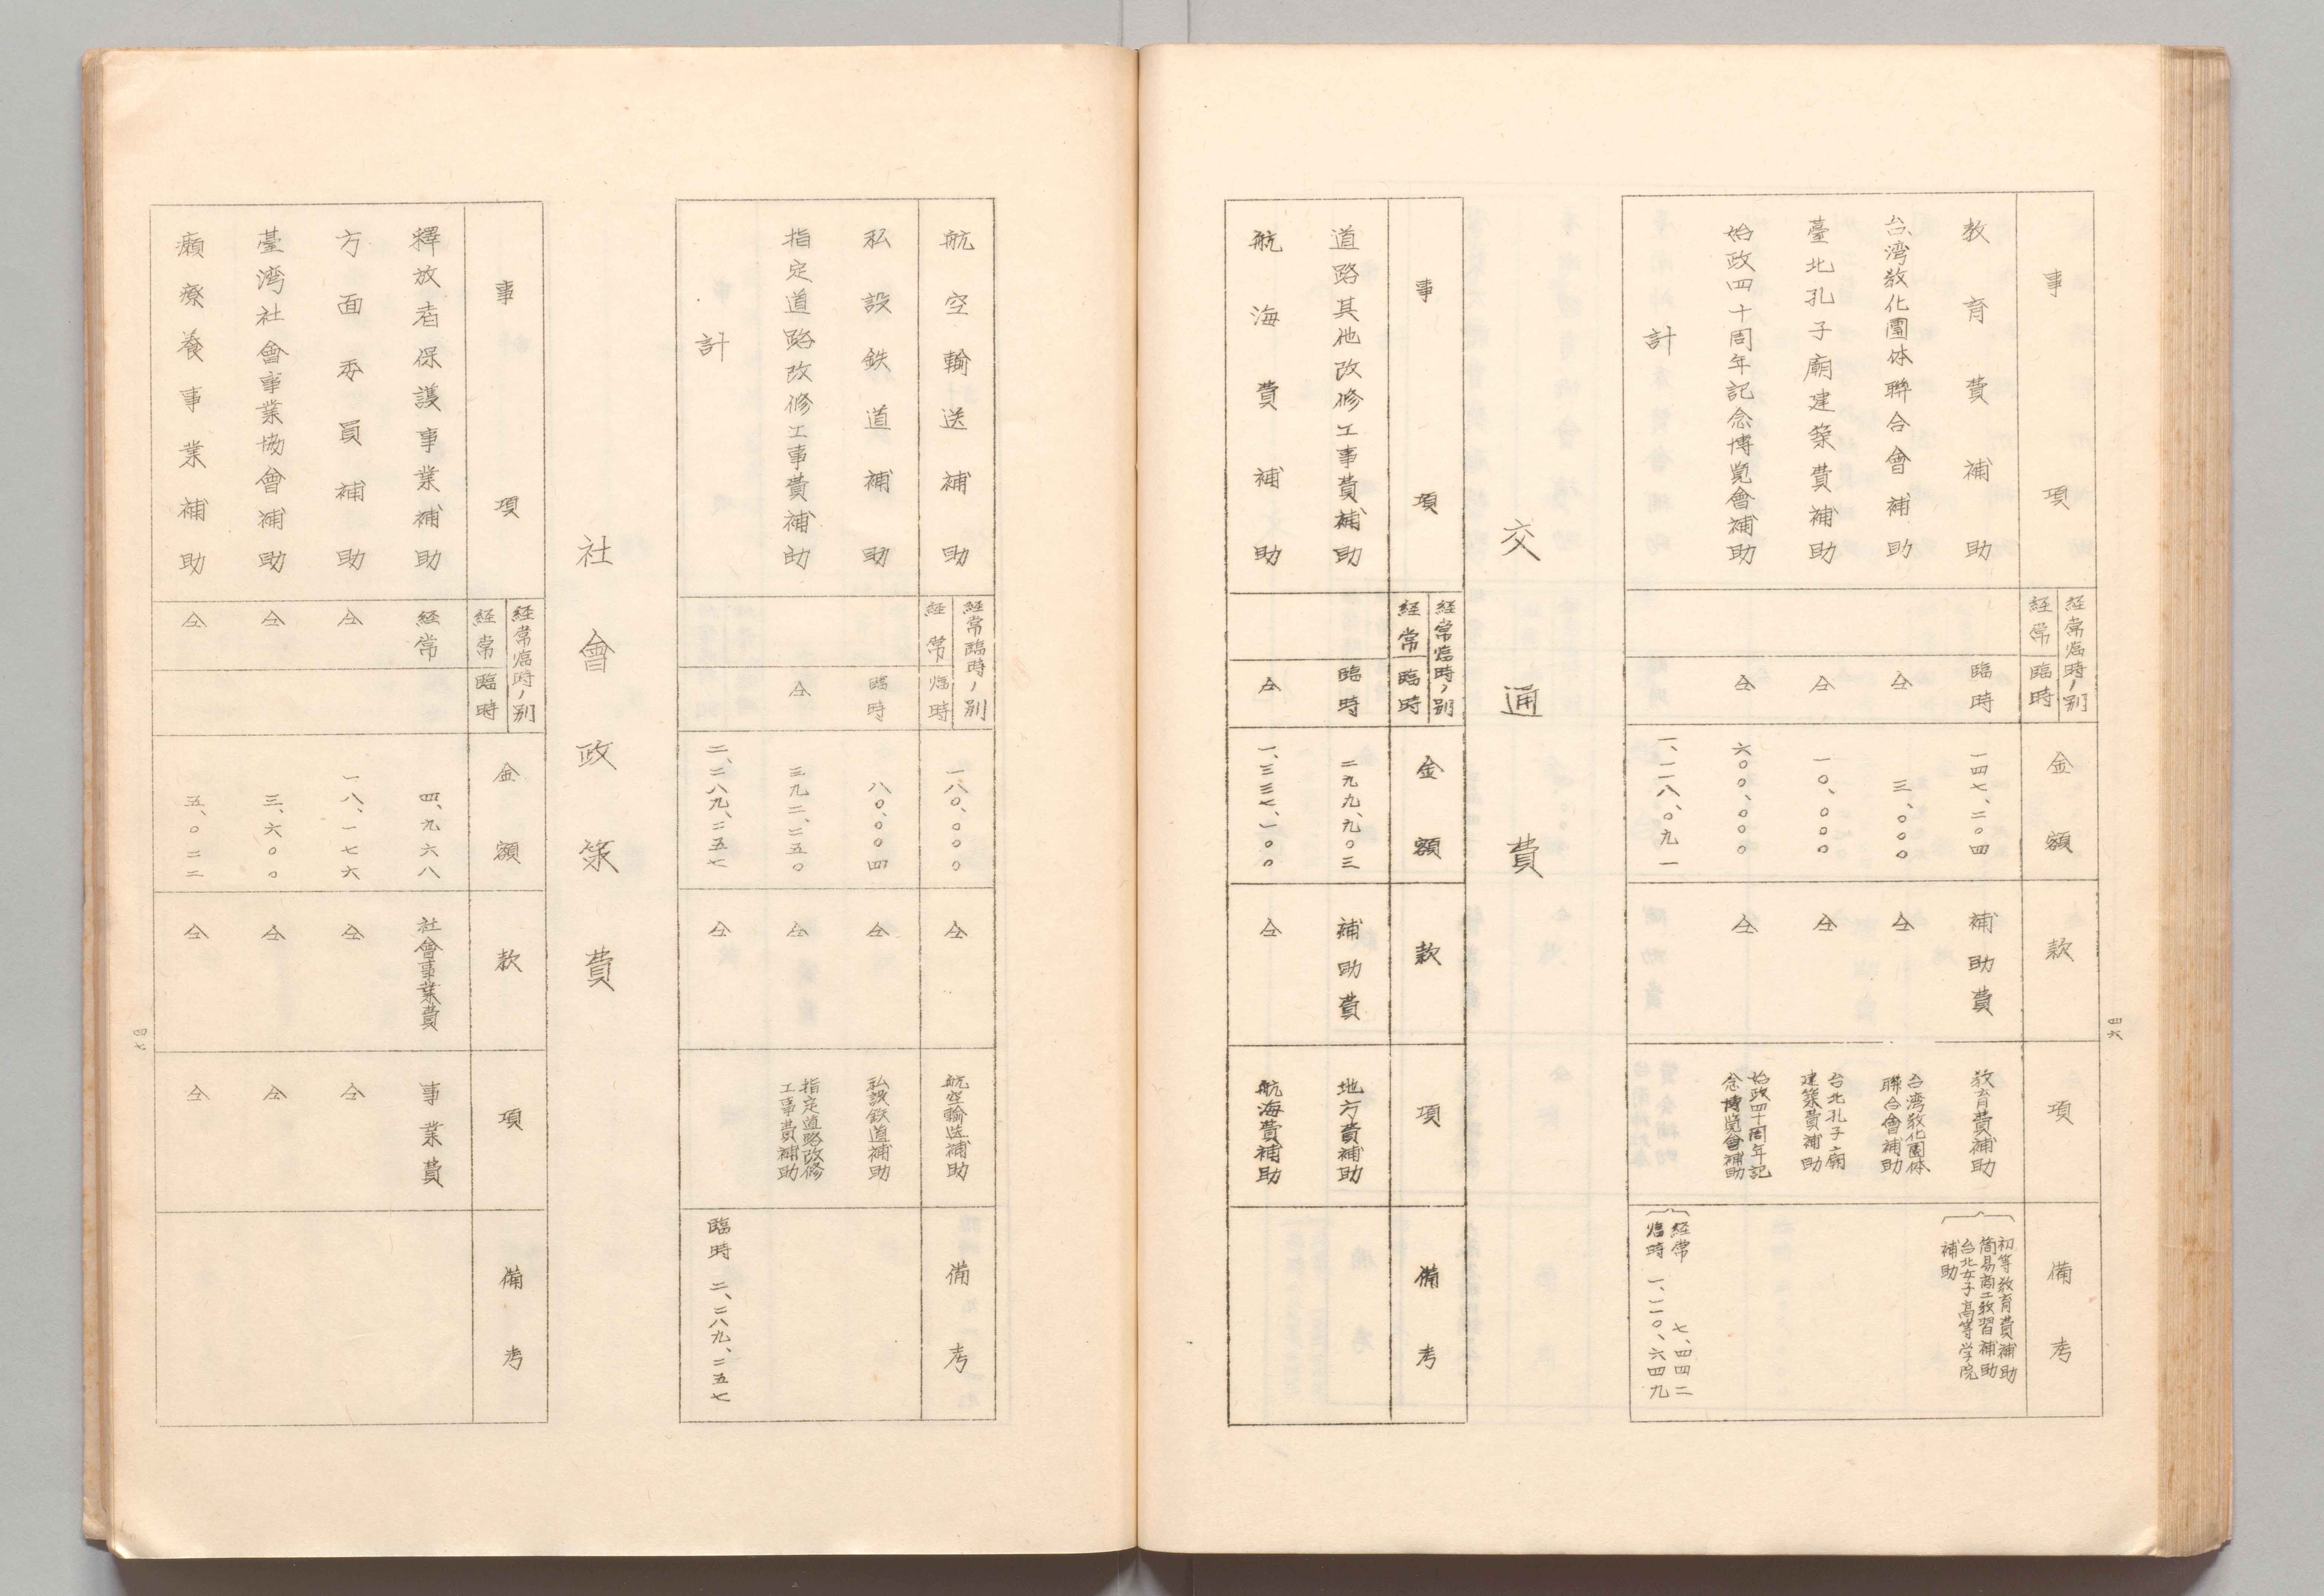 四六
事項
経常臨時ノ別
経常 臨時
金額
款
項
備考
教育費補助 臨時 一四七、二〇四 補助費 教育費補助 初等教育費補助
簡易商工教習補助
台北女子高等学院
補助
台湾教化團体聯合會補助 仝 三、〇〇〇 仝 台湾教化團体
聯合會補助
臺北孔子廟建築費補助 仝 一〇、〇〇〇 仝 台北孔子廟
建築費補助
始政四十周年記念博覧會補助 仝 六〇〇、〇〇〇 仝 始政四十周年記
念博覧會補助
計 一、一二八、〇九一 経常 七、四四二
臨時 一、一二〇、六四九
交通費
事項
経常臨時ノ別
経常 臨時
金額
款
項
備考
道路其他改修工事費補助 臨時 二九九、九〇三 補助費 地方費補助
航海費補助 仝 一、三三七、一〇〇 仝 航海費補助
経常臨時ノ別
経常 臨時
航空輸送補助 一八〇、〇〇〇 仝 航空輸送補助 備考
私設鉄道補助 臨時 八〇、〇〇四 仝 私設鉄道補助
指定道路改修工事費補助 仝 三九二、二五〇 仝 指定道路改修
工事費補助
計 二、二八九、二五七 仝 臨時 二、二八九、二五七
社會政策費
事項
経常臨時ノ別
経常 臨時
金額
款
項
備考
釋放者保護事業補助 経常 四、九六八 社會事業費 事業費
方面委員補助 仝 一八、一七六 仝 仝
臺湾社會事業協會補助 仝 三、六〇〇 仝 仝
癩療養事業補助 仝 五、〇二二 仝 仝
四七